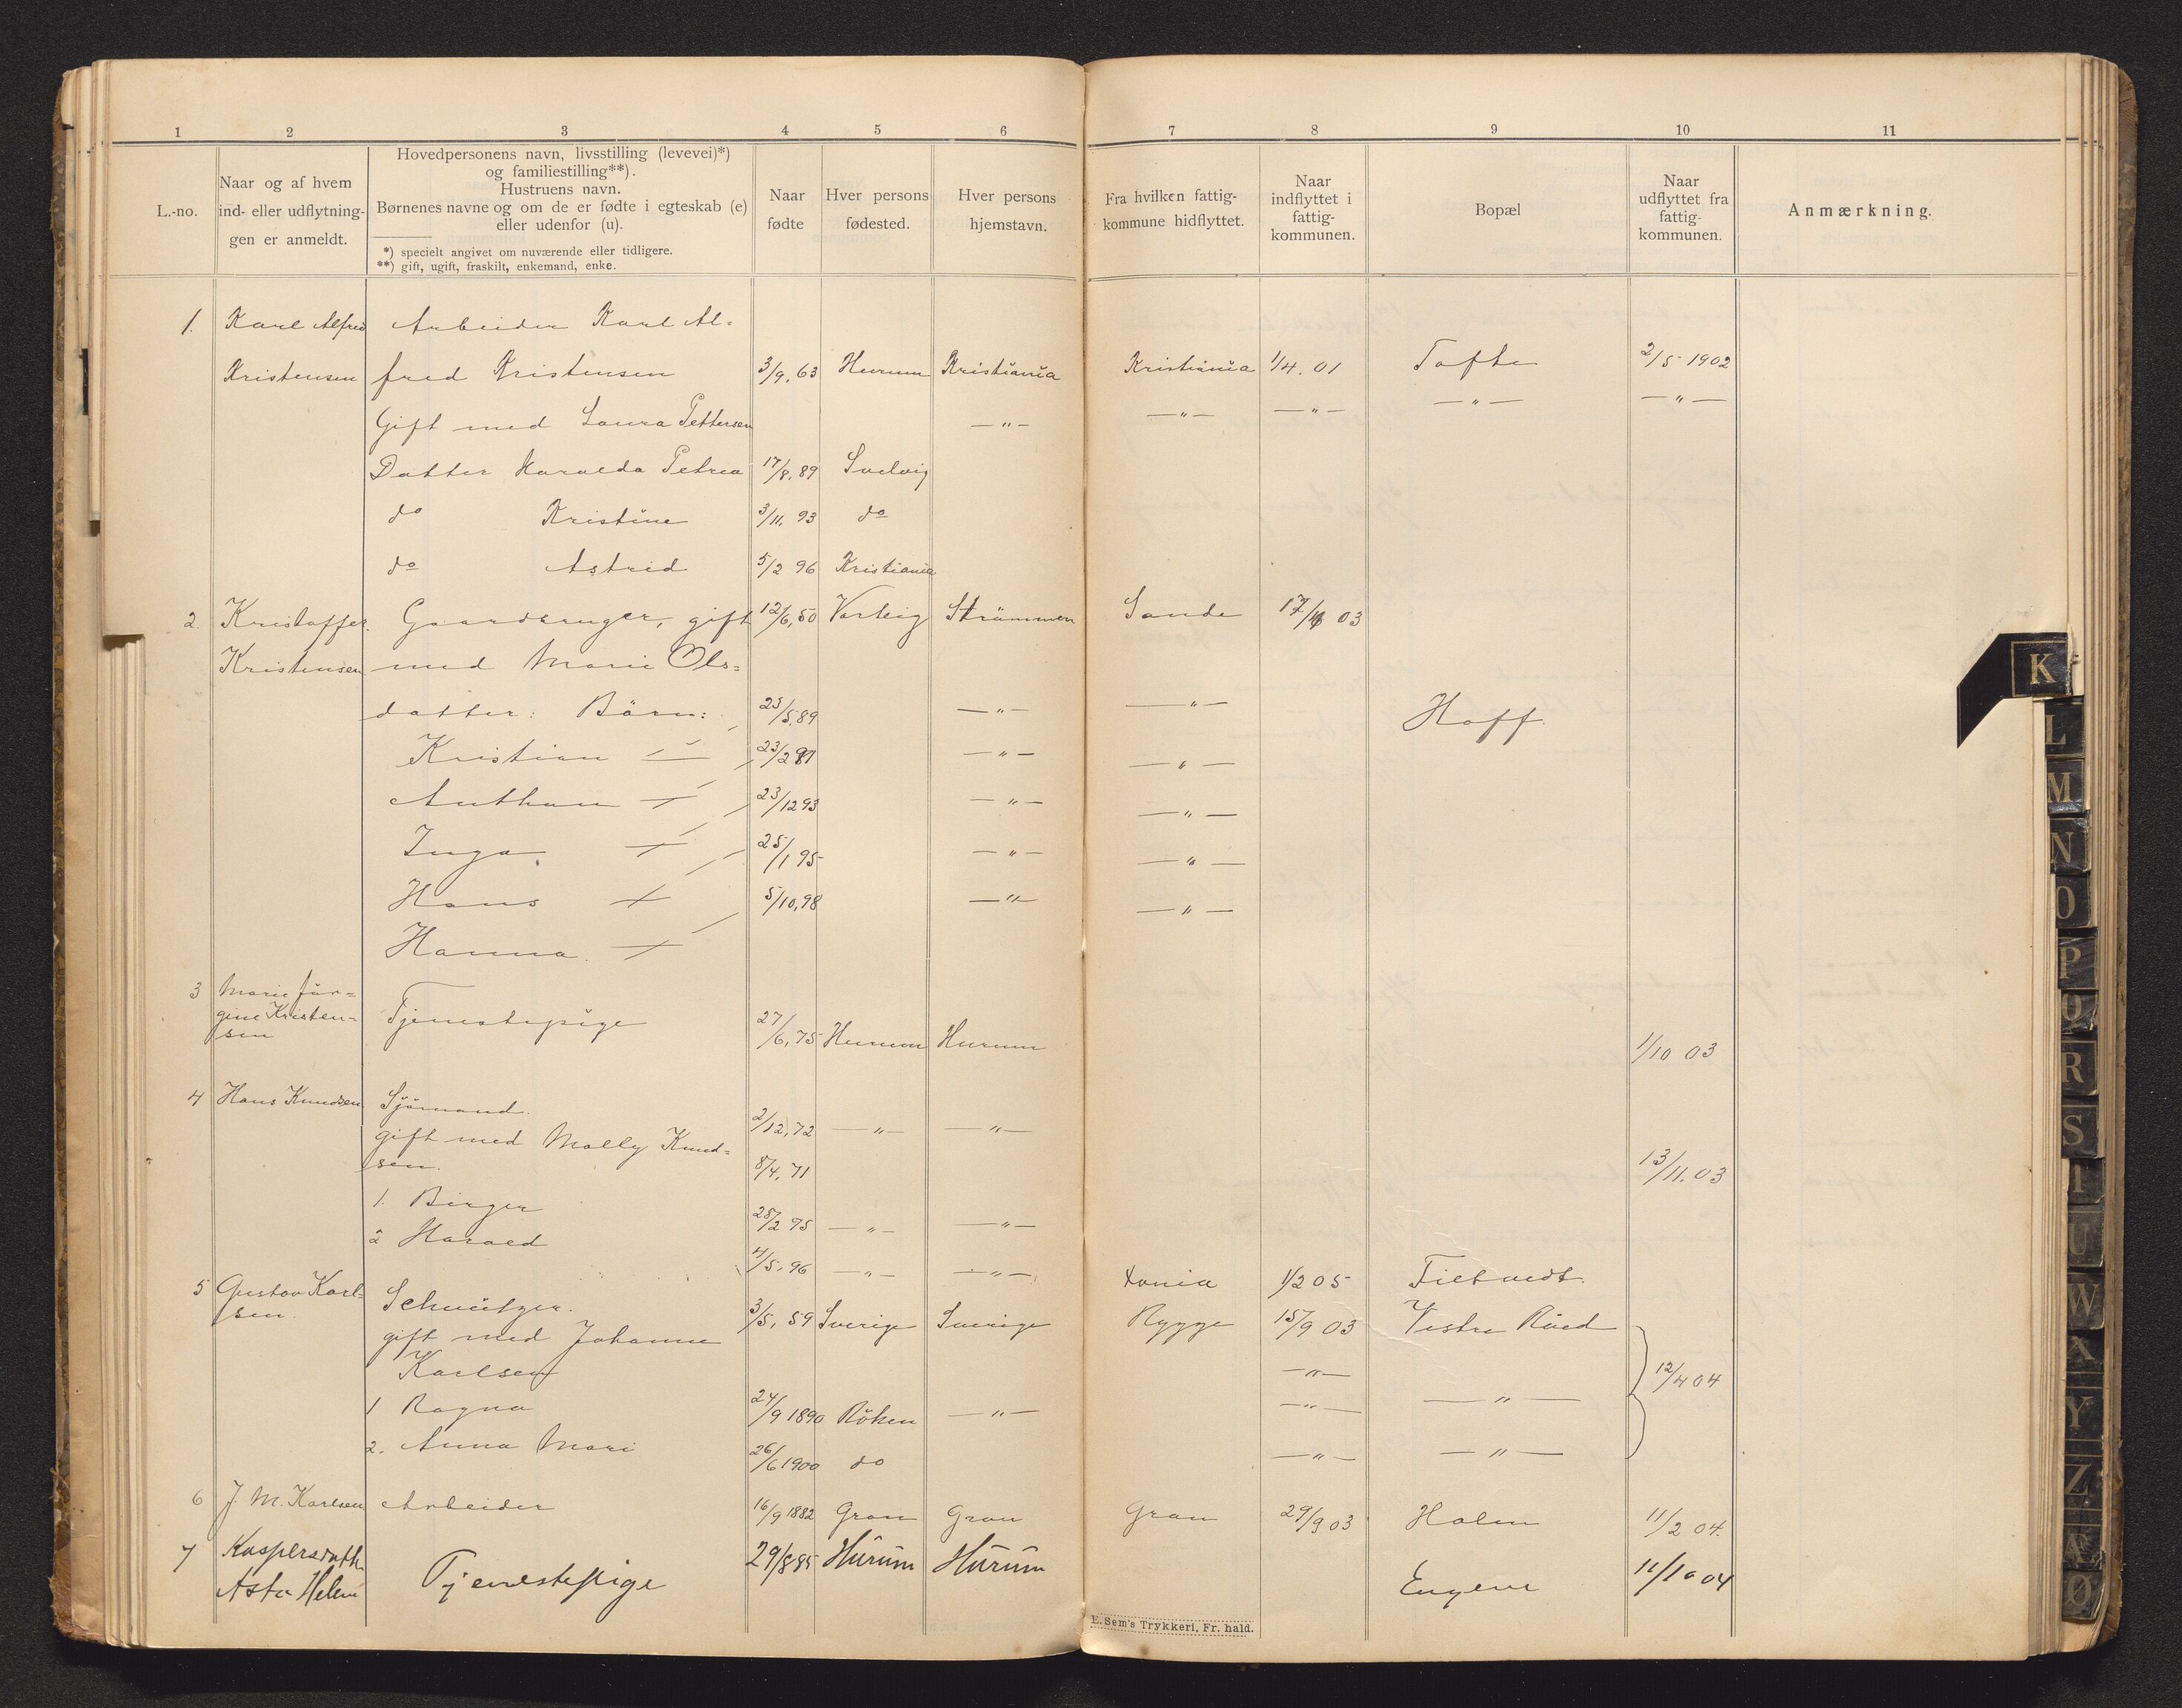 1 2 3 4 5 6 7 8 9 10 11
L.-no.
Naar og af hvem
ind- eller udflytnin-
gen er anmeldt.
Hovedpersonens navn, livsstilling (levevei)*)
og familiestilling**).
Hustruens navn.
Børnenes navne og om de er fødte i egteskab (e)
eller udenfor (u).
*) specielt angivet om nuværende eller tidligere.
**) gift, ugift, fraskilt, enkemand, enke.
Naar
fødte
Hver persons
fødested.
Hver persons
hjemstavn.
Fra hvilken fattig-
kommune hidflyttet.
Naar
indflyttet i
fattig-
kommunen.
Bopæl
Naar
udflyttet fra
fattig-
kommunen.
Anmærkning.
1. Karl Alfred Arbeider Karl Al=
Kristensen fred Kristensen 3/9. 63 Hurum Kristiania Kristiania 1/4. 01 Tofte 2/5 1902
Gift med Laura Pettersen —"— —"— —"— —"— —"—
Datter Haralda Petrea 17/8. 89 Svelvig
do Kristine 3/11. 93 do
do Astrid 5/2 96 Kristiania
2. Kristoffer Gaardbruger, gift 12/6, 50 Varteig Strömmen Sande 17/4 03
Kristensen med Marie Ols=
datter: Börn: 23/5.89 —"— —"— Hoff.
Kristian 23/2 91 —"— —"—
Anthon 23/12 93 —"— —"—
Inga 25/1 95 —"— —"—
Hans 5/10, 98 —"— —"—
Hanna.
3 Marie Jör=
gine Kristen= Tjenestepige 27/6, 75 Hurum Hurum 1/10 03
sen
4 Hans Knudsen Sjömand. 2/12, 72 —"— —"—
gift med Molly Knud=
sen. 8/4, 71 13/11. 03
1. Birger 28/2 95 —"— —"—
2 Harald 4/5. 96 —"— —"—
Xania 1/2 05 Filtvedt.
5 Gustav Karl= Schweitzer. 3/5, 59 Sverige Sverige Rygge 15/9 03 Vestre Röed
sen. gift med Johanne
Karlsen —"— 12/4 04
1 Ragna 24/9 1890 Röken —"— —"— —"—
2. Anna Mari 26/6 1900 do —"— —"—
6 J. M. Karlsen Arbeider 16/9 1882 Gran Gran Gran 29/9 03 Holm 11/2 04.
7 Kaspersdatter
Asta Helene Tjenestepige 29/8 85 Hurum Hurum Engene 11/10 04
E. Sem's Trykkeri, Fr. hald.
K
L
M
N
O
P
Q
R
S
T
U
W
X
Y
Z
Æ
Ø